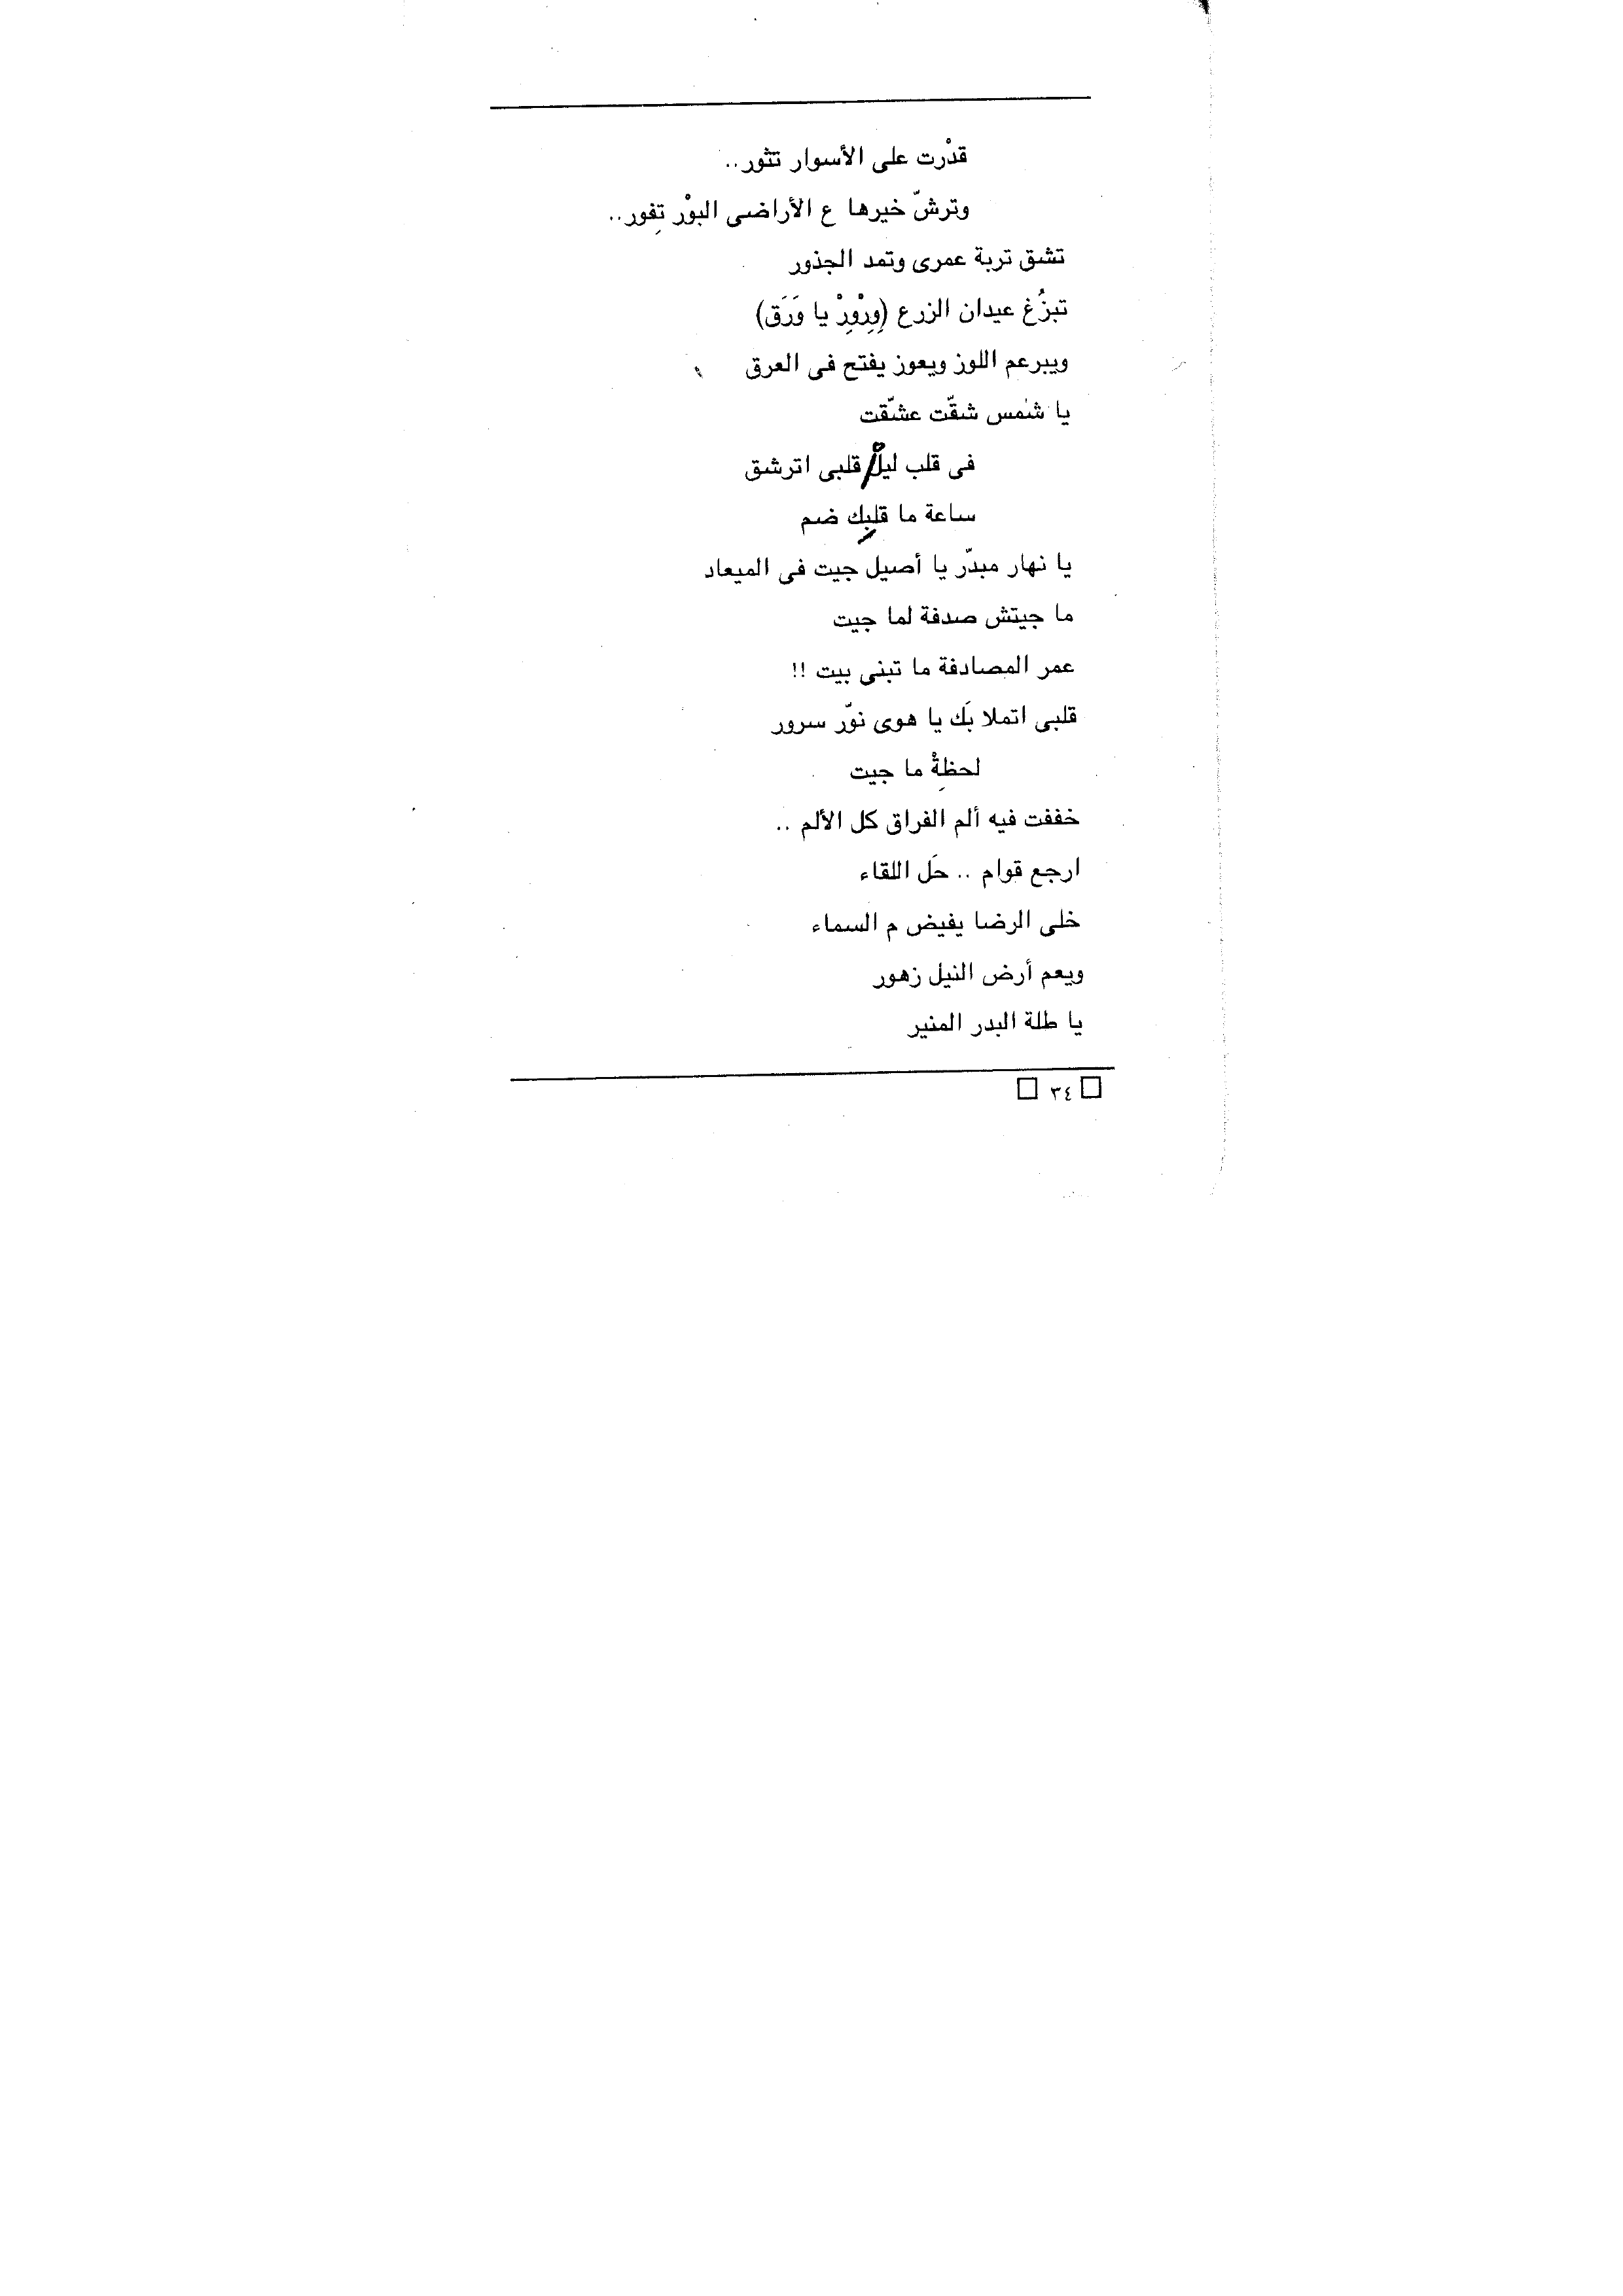 قدْرت على الأسوار تثور..
وترشّ خيرها ع الأراضى البوْر تِفور..
تشق تربة عمرى وتمد الجذور
تبزُغ عيدان الزرع (وِرْوِرْ يا وَرَق)
ويبرعم اللوز ويعوز يفتح فى العرق
يا شمس شقّت عشّقت
فى قلب ليلْ قلبى اترشق
ساعة ما قلبِك ضم
يا نهار مبدّر يا أصيل جيت فى الميعاد
ما جيتش صدفة لما جيت
عمر المصادفة ما تبنى بيت !!
قلبى اتملا بَك يا هوى نوّر سرور
لحظِةْ ما جيت
خففت فيه ألم الفراق كل الألم ..
ارجع قوام .. حَل اللقاء
خلى الرضا يفيض م السماء
ويعم أرض النيل زهور
يا طلة البدر المنير
□ ٣٤ □